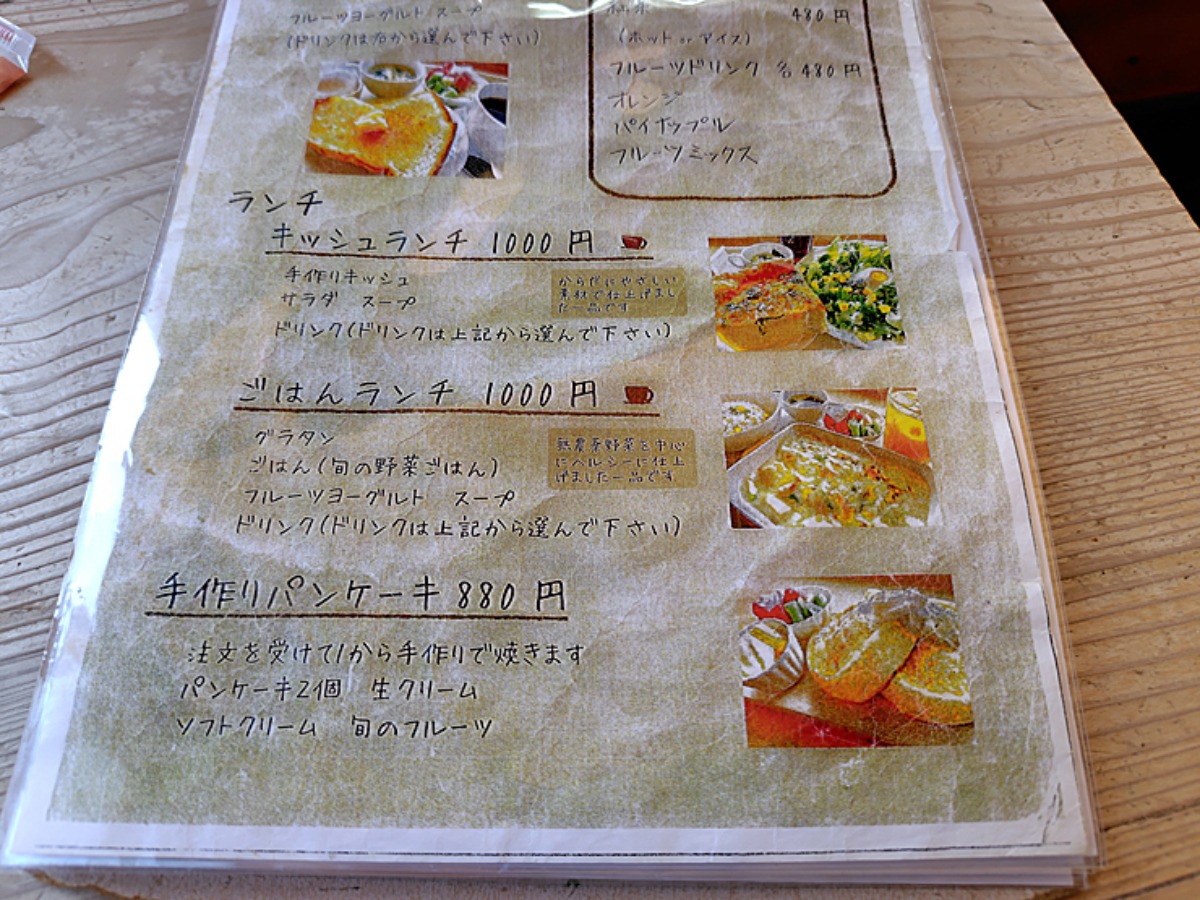 フルーツヨーグルト スープ
(ドリンクは右から選んで下さい)
480円
(ホット or アイス)
フルーツドリンク 各480円
オレンジ
パイナップル
フルーツミックス
ランチ
キッシュランチ 1000円
手作りキッシュ
サラダ スープ
ドリンク(ドリンクは上記から選んで下さい)
からだにやさしい
素材で仕上げまし
た一品です
ごはんランチ 1000円
グラタン
ごはん(旬の野菜ごはん)
フルーツヨーグルト スープ
ドリンク(ドリンクは上記から選んで下さい)
無農薬野菜を中心
にヘルシーに仕上
げました一品です
手作りパンケーキ 880円
注文を受けて1から手作りで焼きます
パンケーキ2個 生クリーム
ソフトクリーム 旬のフルーツ